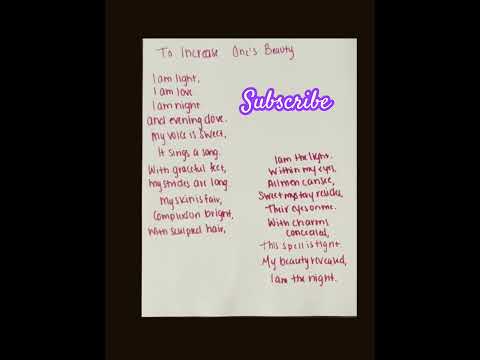 To Increase One's Beauty
I am light,
I am love
I am night
and evening dove.
My voice is sweet,
It sings a song.
With graceful feet,
my strides are long.
My skin is fair,
Complexion bright,
With sculpted hair,
Subscribe
I am the light.
Within my eyes,
All men can see,
Sweet mystery resides,
Their eyes on me.
With charms
concealed,
This spell is tight
My beauty revealed,
I am the night.